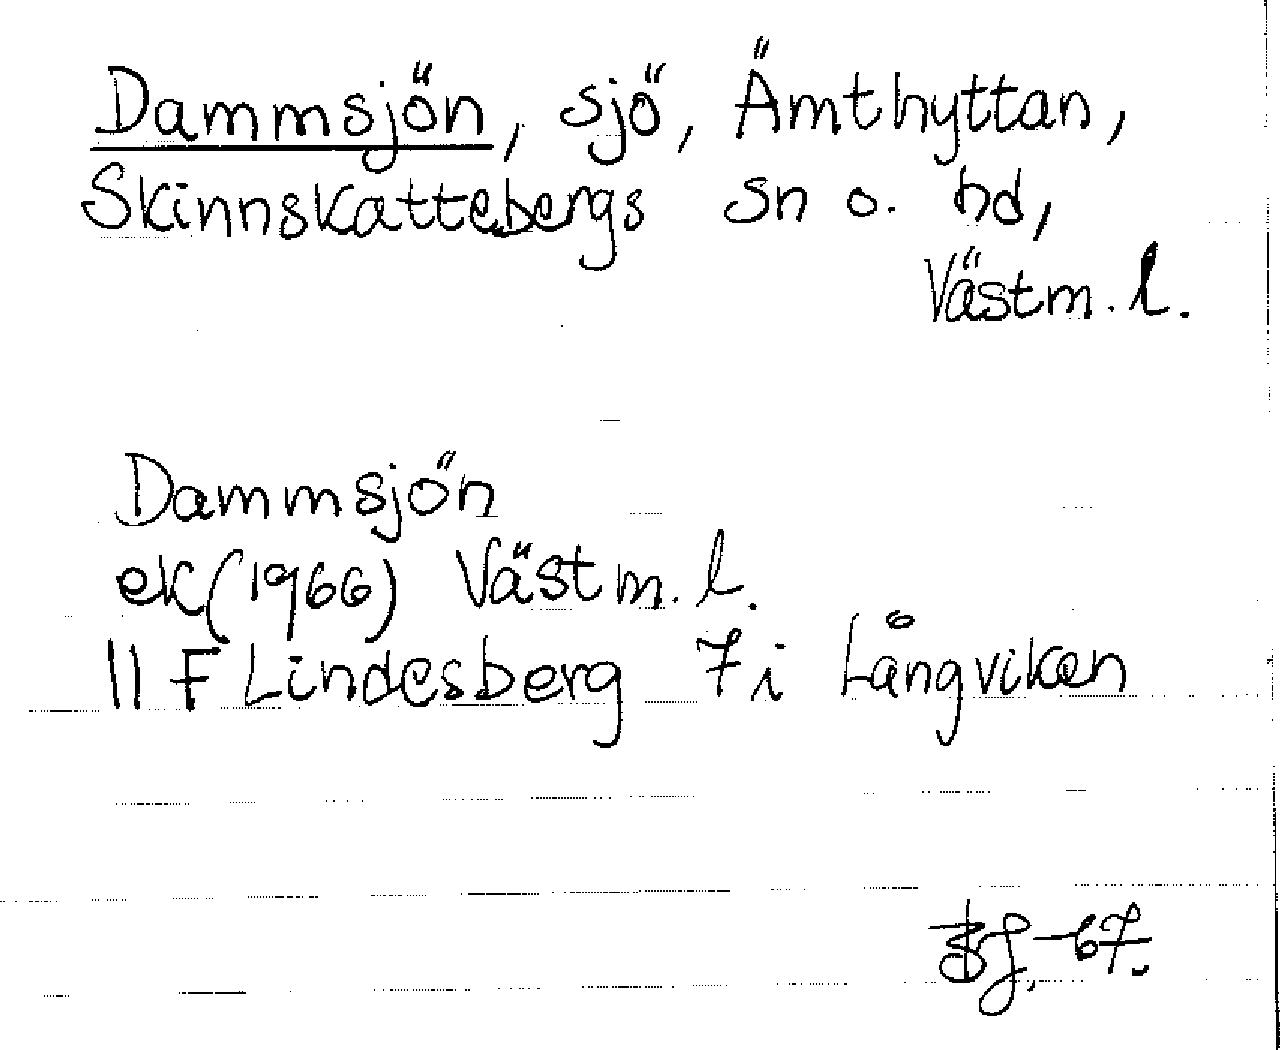 Dammsjön, sjö, Ämthyttan,
Skinnskattebergs sn o. hd,
Västm. l.
Dammsjön
ek (1966) Västm. l.
11 F Lindesberg 7i Långviken
-67.